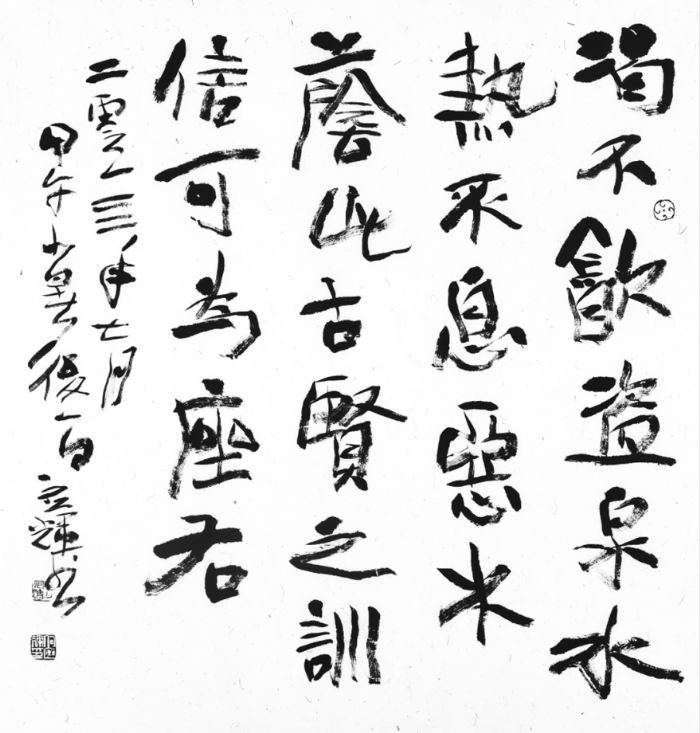 渴不飲盜泉水
熱不息惡木
蔭此古賢之訓
信可為座右
二零一亖年七月
甲午小暑後一日立輝书